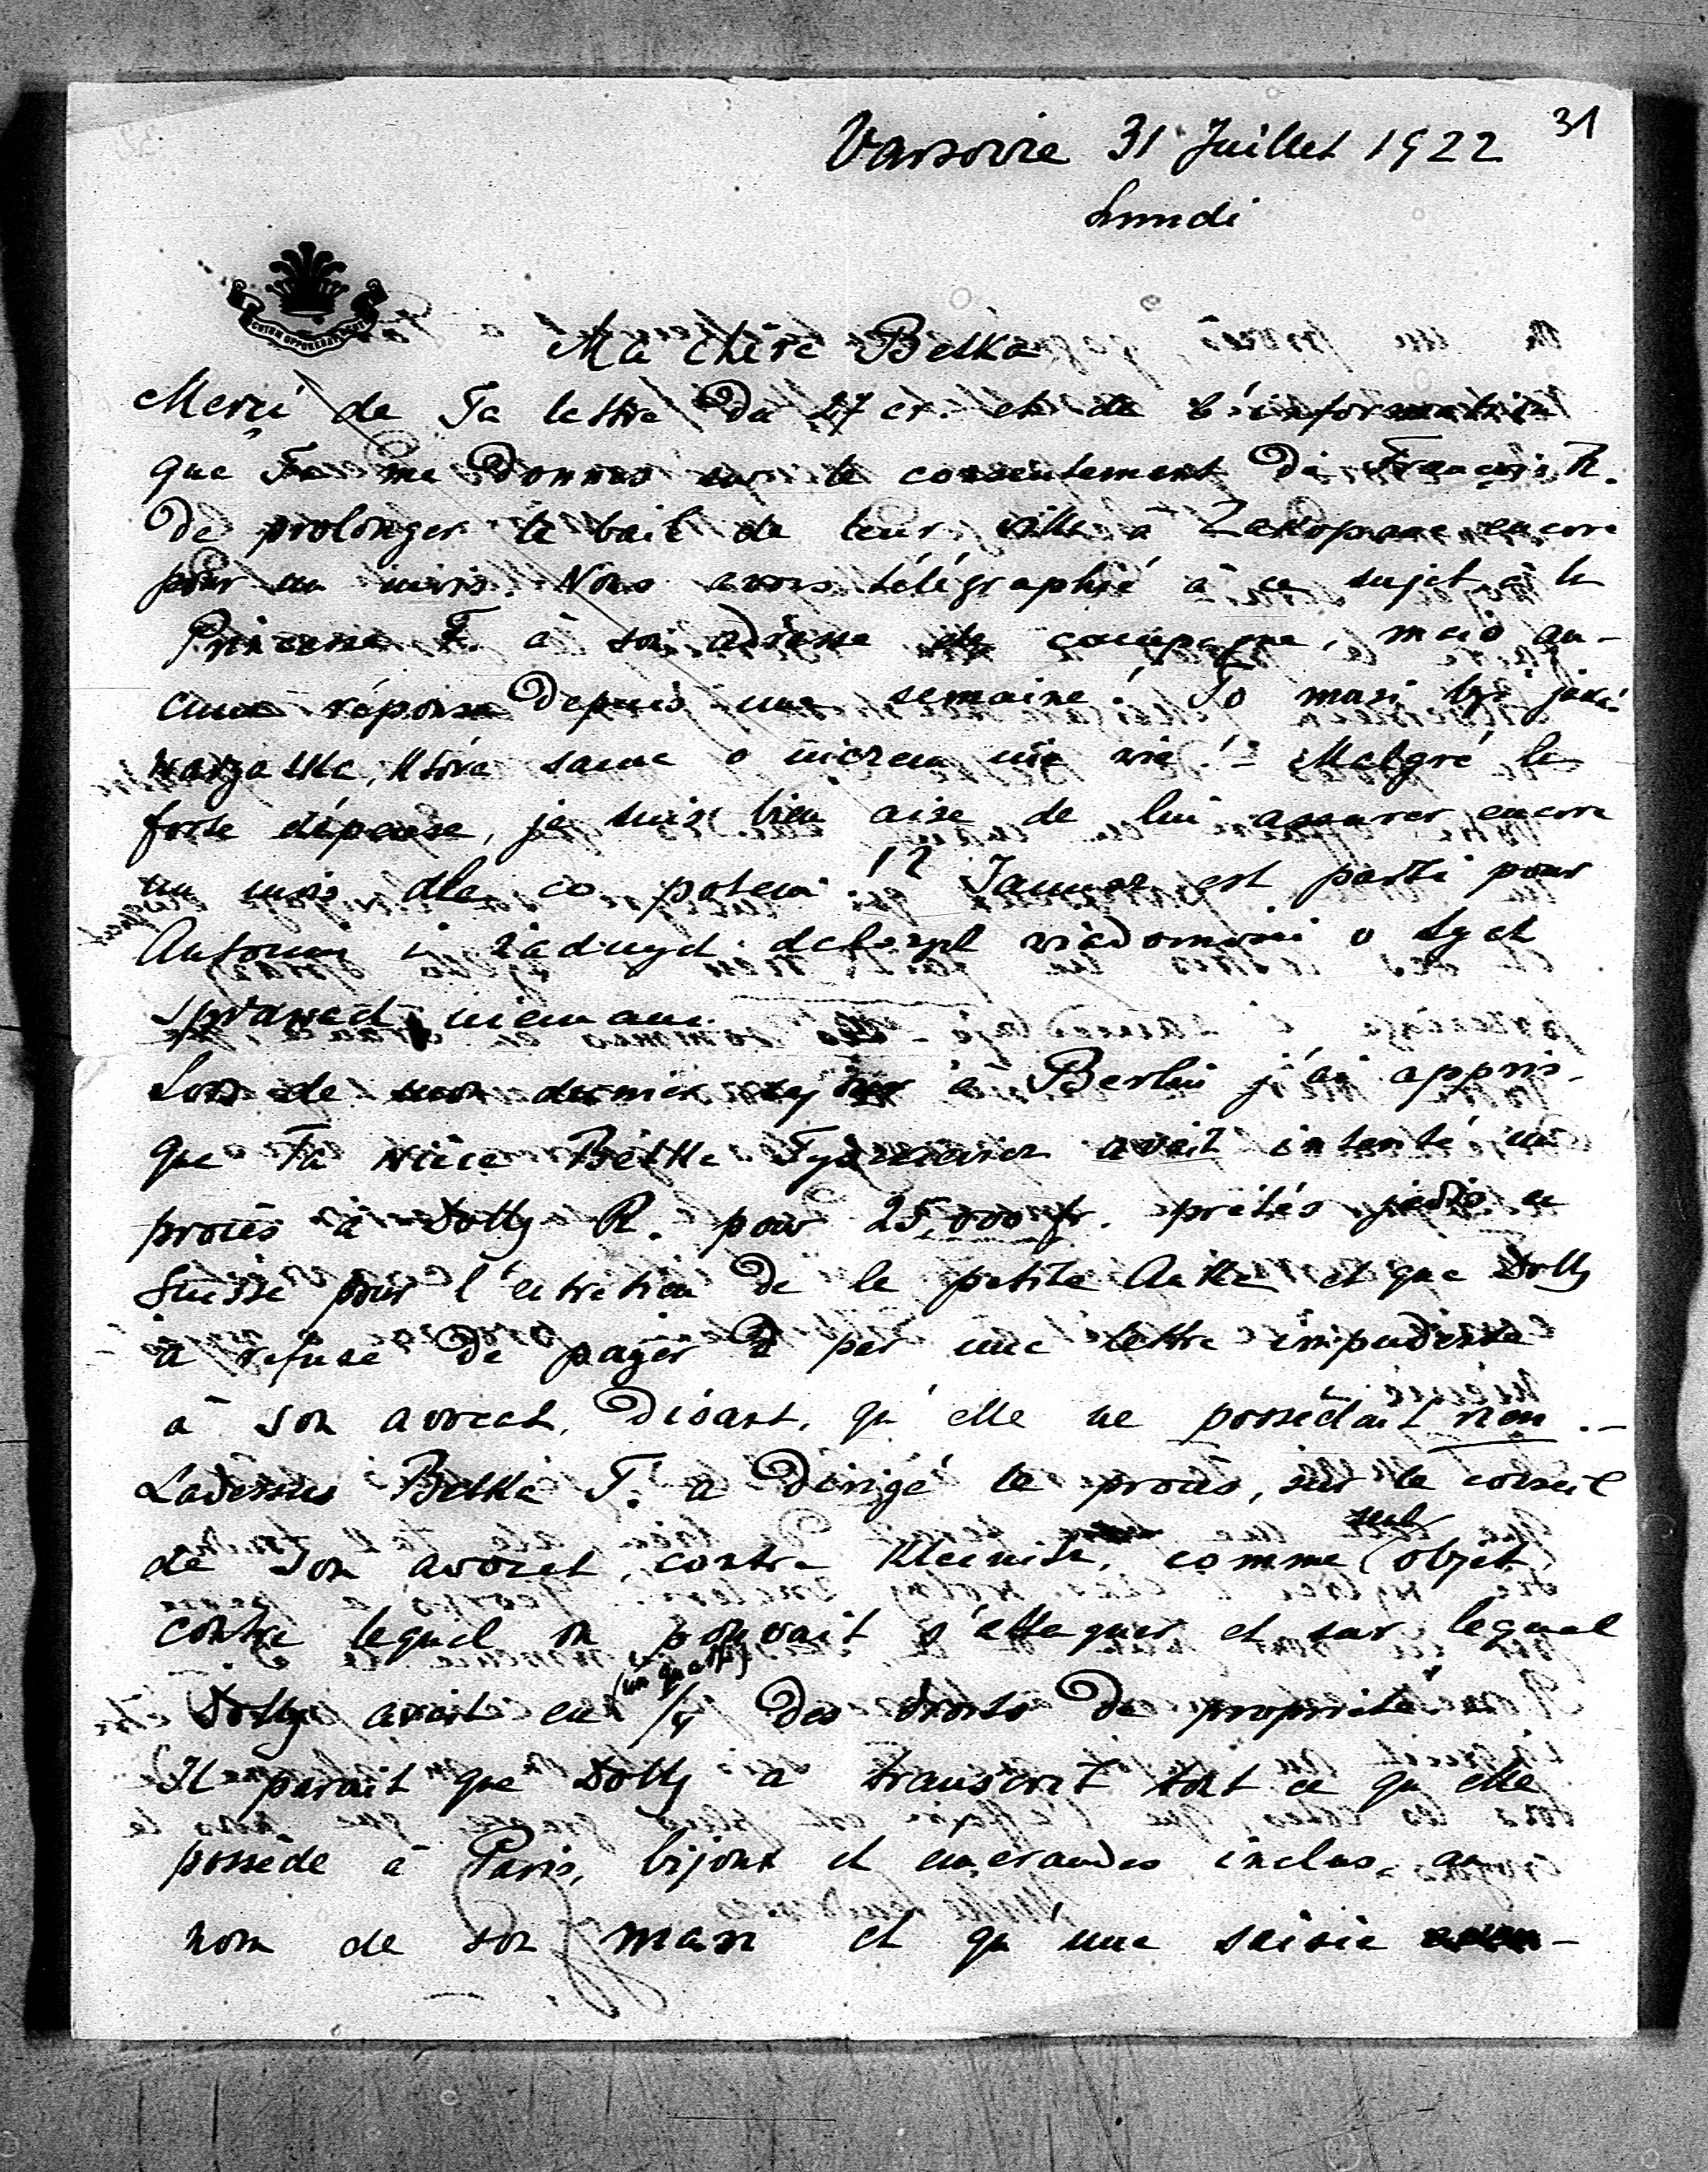 31
Varsovie 31 Juillet 1922
Lundi
Ma chère Betka
Merci de Ta lettre du 27 cr. et de l'information
que Tu me donnes sur le consentement de François R.
de prolonger le bail de leur villa à Zakopane encore
pour un mois. Nous avons télégraphié à ce sujet à la
Princesse F. à son adresse de campagne, mais au-
cune réponse depuis une semaine! To musi być jakaś
warjatka, która sama o niczem nie wie! - Malgré la
forte dépense, je suis bien aise de lui assurer encore
un mois ale co potem!? Janusz est parti pour
Antonin i żadnych wiadomości o tych
sprawach niemam.
Lors de mon dernier séjour à Berlin j'ai appris
que Ta nièce Betka Tyszkiewicz avait intenté un
procès à Dolly R. pour 25,000 fr. prêtés jadis en
Suisse pour l'entretien de la petite Anka et que Dolly
a refusé de payer par une lettre impudente
à son avocat, disant, qu'elle ne possédait rien. -
Ladessus Betka T. a dirigé le procès, sur le conseil
de son avocat, contre Kleinitz, comme seul objet
contre lequel on pouvait s'attaquer et sur lequel
Dolly avait eu 1/4 (un quart) des droits de propriété.
Il parait que Dolly a transcrit tout ce qu'elle
possède à Paris, bijoux et émeraudes inclus, au
nom de son mari et qu'une saisie